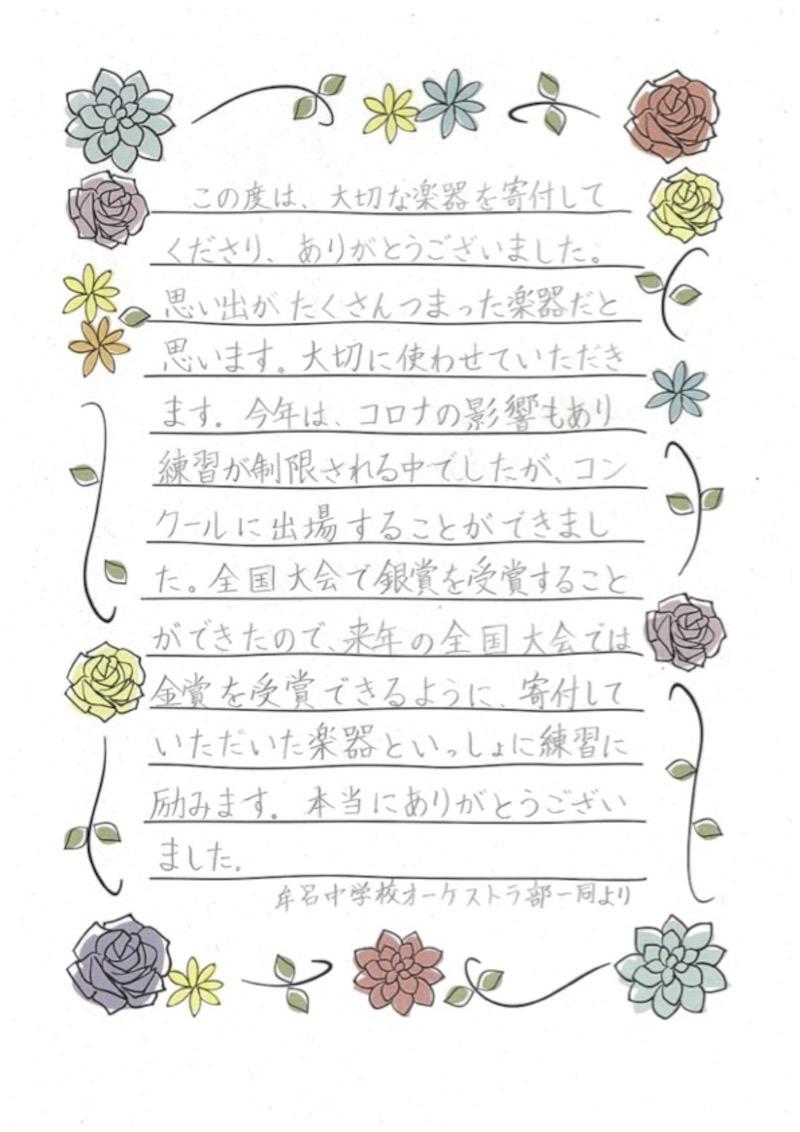 この度は、大切な楽器を寄付して
くださり、ありがとうございました。
思い出がたくさんつまった楽器だと
思います。大切に使わせていただき
ます。今年は、コロナの影響もあり
練習が制限される中でしたが、コン
クールに出場することができまし
た。全国大会で銀賞を受賞すること
ができたので、来年の全国大会では
金賞を受賞できるように、寄付して
いただいた楽器といっしょに練習に
励みます。本当にありがとうござい
ました。
牟呂中学校オーケストラ部一同より